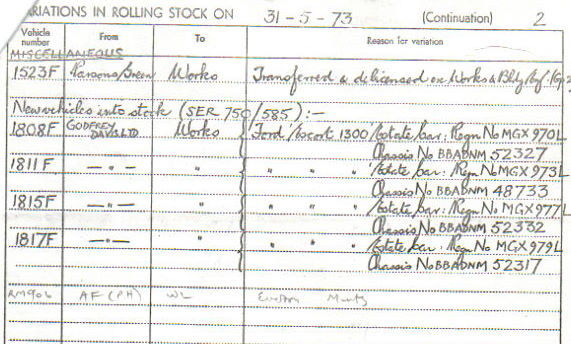 VARIATIONS IN ROLLING STOCK ON 31-5-73 (Continuation) 2
Vehicle number From To Reason for variation
MISCELLANEOUS
1523F Parsons Green Works Transferred & delicensed ex Works & Bldg
New vehicles into stock (SER 750/585):-
1808F GODFREY DAVIS LTD Works Ford Escort 1300 Estate car: Regn No MGX 970L
Chassis No BBABNM 52327
1811F —"— " " " " Estate car: Regn No MGX 973L
Chassis No BBABNM 48733
1815F —"— " " " " Estate car: Regn No MGX 977L
Chassis No BBABNM 52332
1817F —"— " " " " Estate car: Regn No MGX 979L
Chassis No BBABNM 52317
RM906 AF (PH) WL